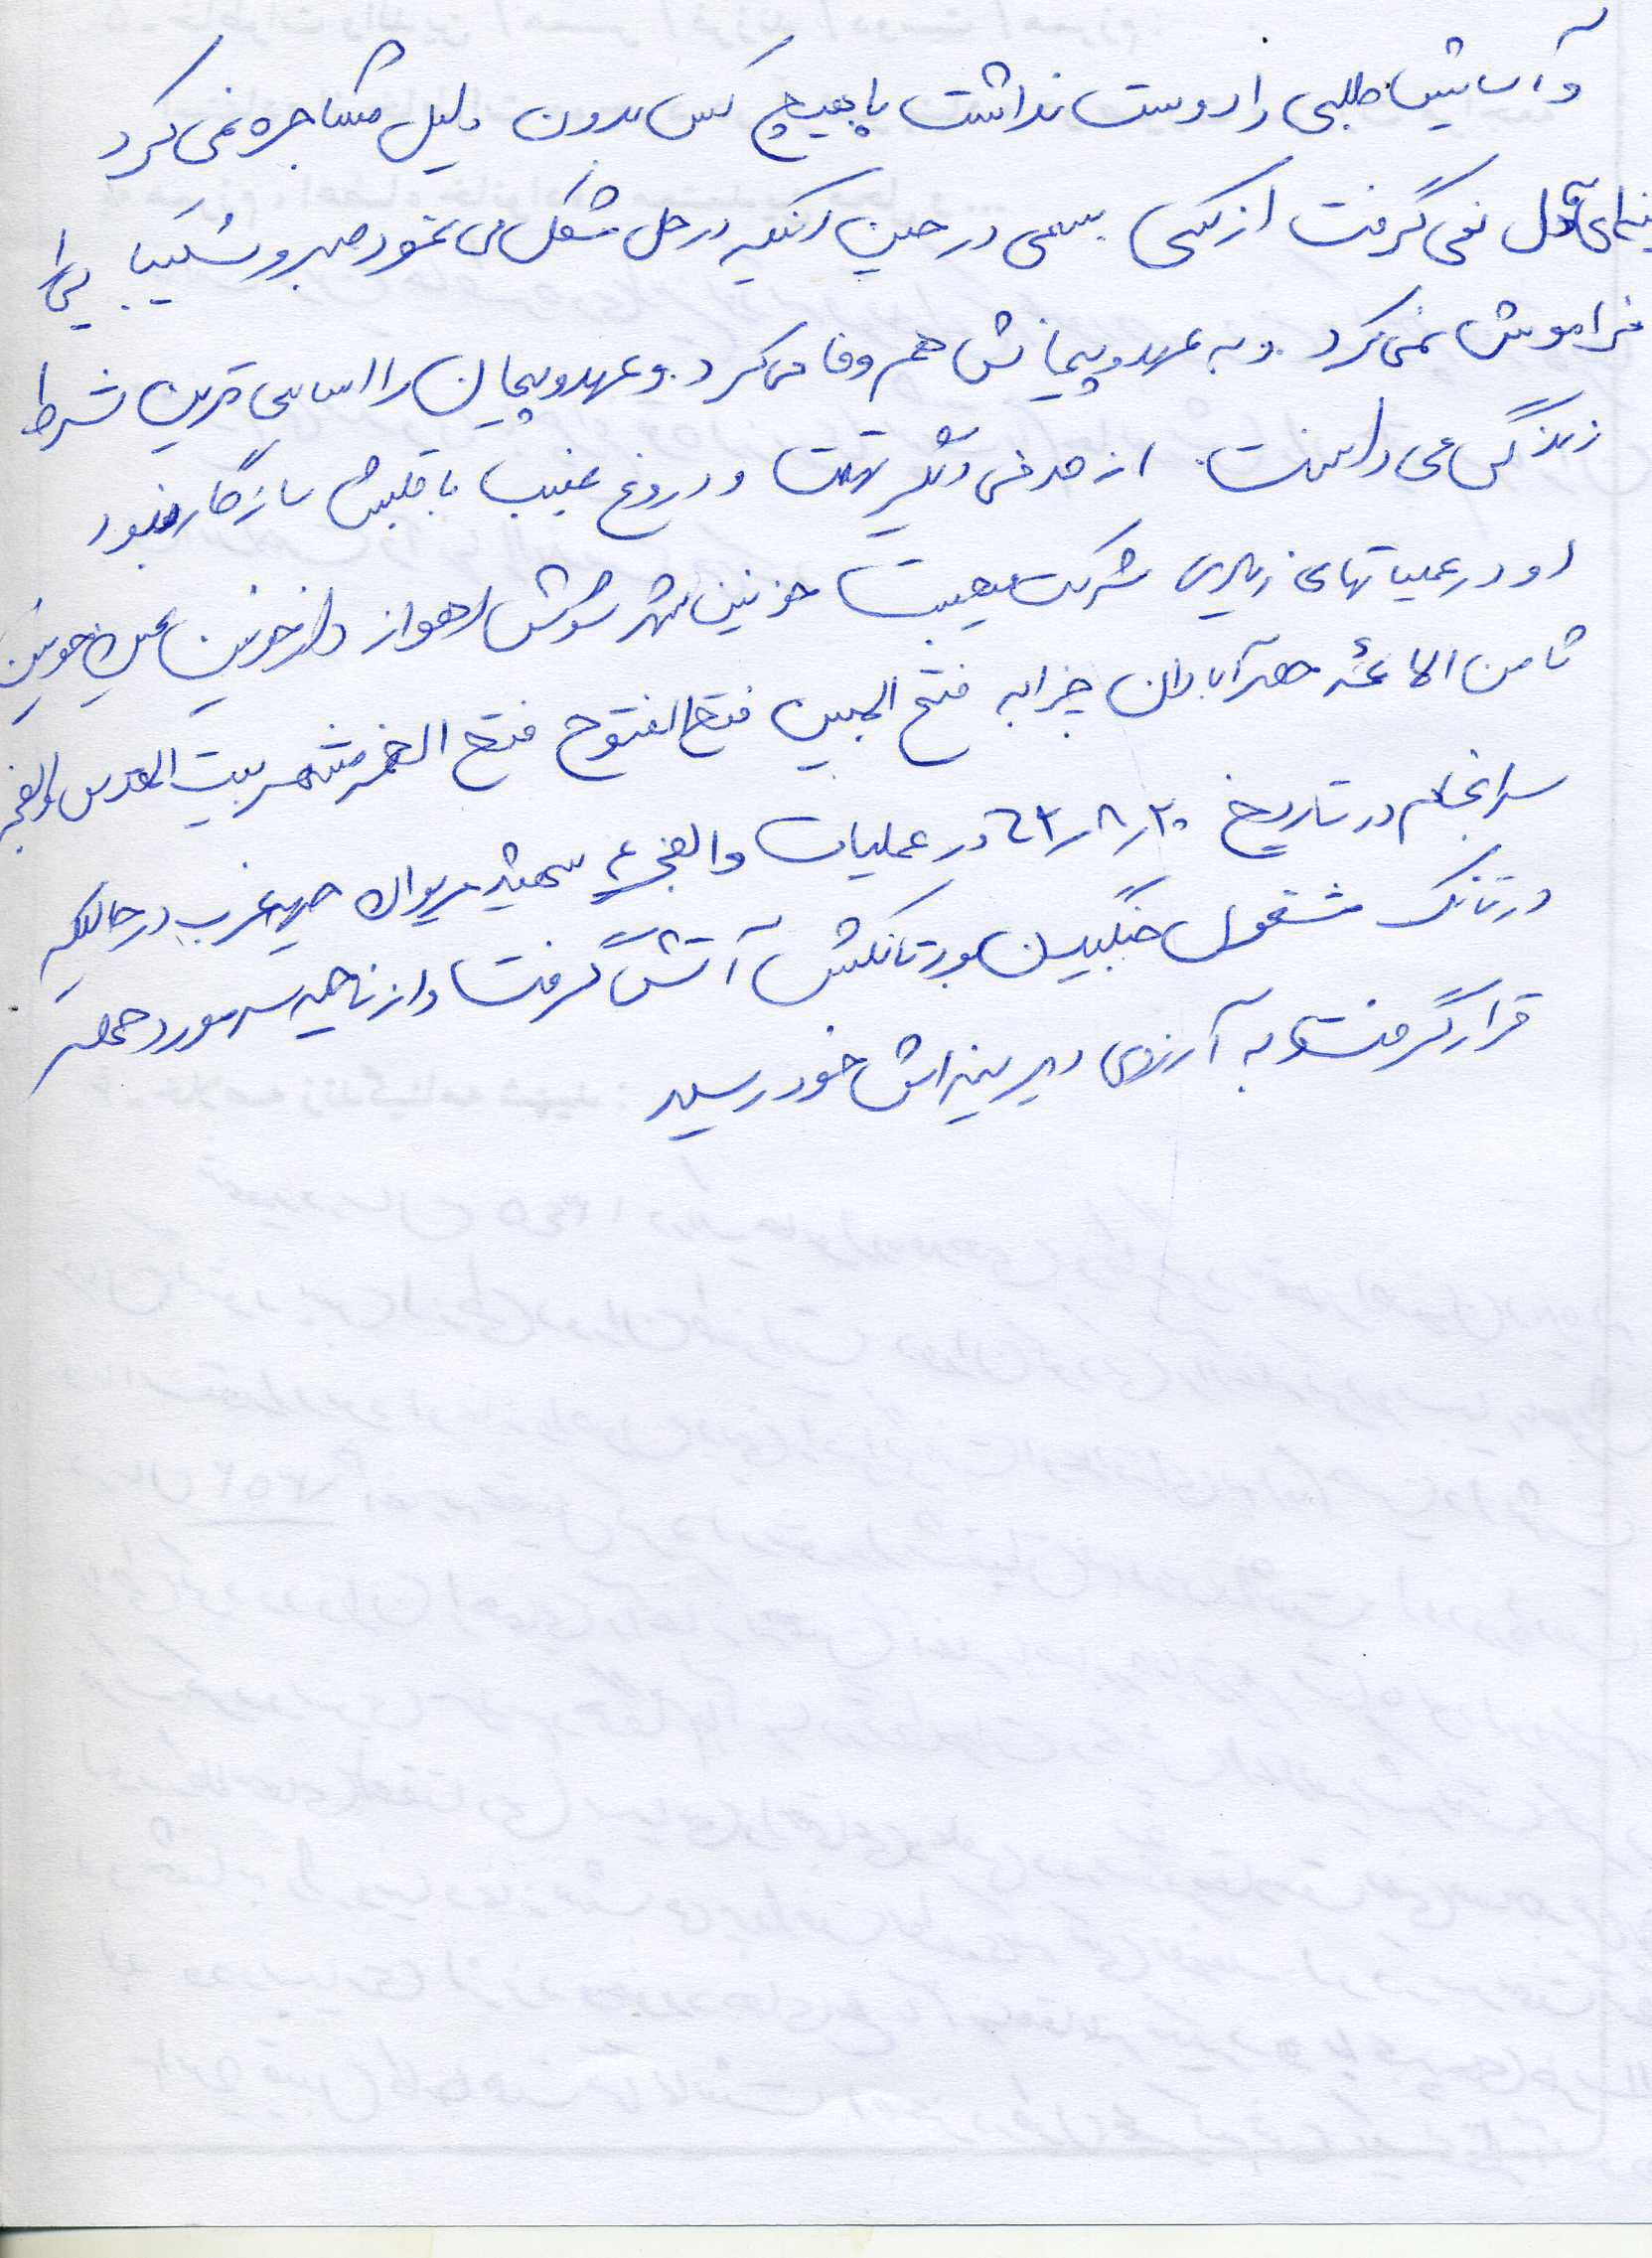 و آسایش طلبی را دوست نداشت با هیچ کس بدون دلیل مشاجره نمی کرد
دل نمی گرفت از کسی در حین اینکه در حل مشکل می نمود صبر و شکیبایی را
فراموش نمی کرد. و به عهد و پیمانش هم وفا می کرد. و عهد و پیمان را اساسی ترین شرط
زندگی می دانست. از حرفی تهمت و دروغ غیبت با قلبش سازگار نبود
او در عملیاتهای زیادی شرکت خونین شهر شوش اهواز دارخوین
ثامن الائمه حصر آبادان چزابه فتح المبین فتح الفتوح فتح الخرمشهر بیت المقدس والفجر
سرانجام در تاریخ ۶۲٫۸٫۲۰ در عملیات والفجر ۴ مریوان جبهه غرب در حالیکه
در تانک مشغول جنگیدن بود تانکش آتش گرفت و از ناحیه سر مورد حمله
قرار گرفت و به آرزوی دیرینه اش خود رسید